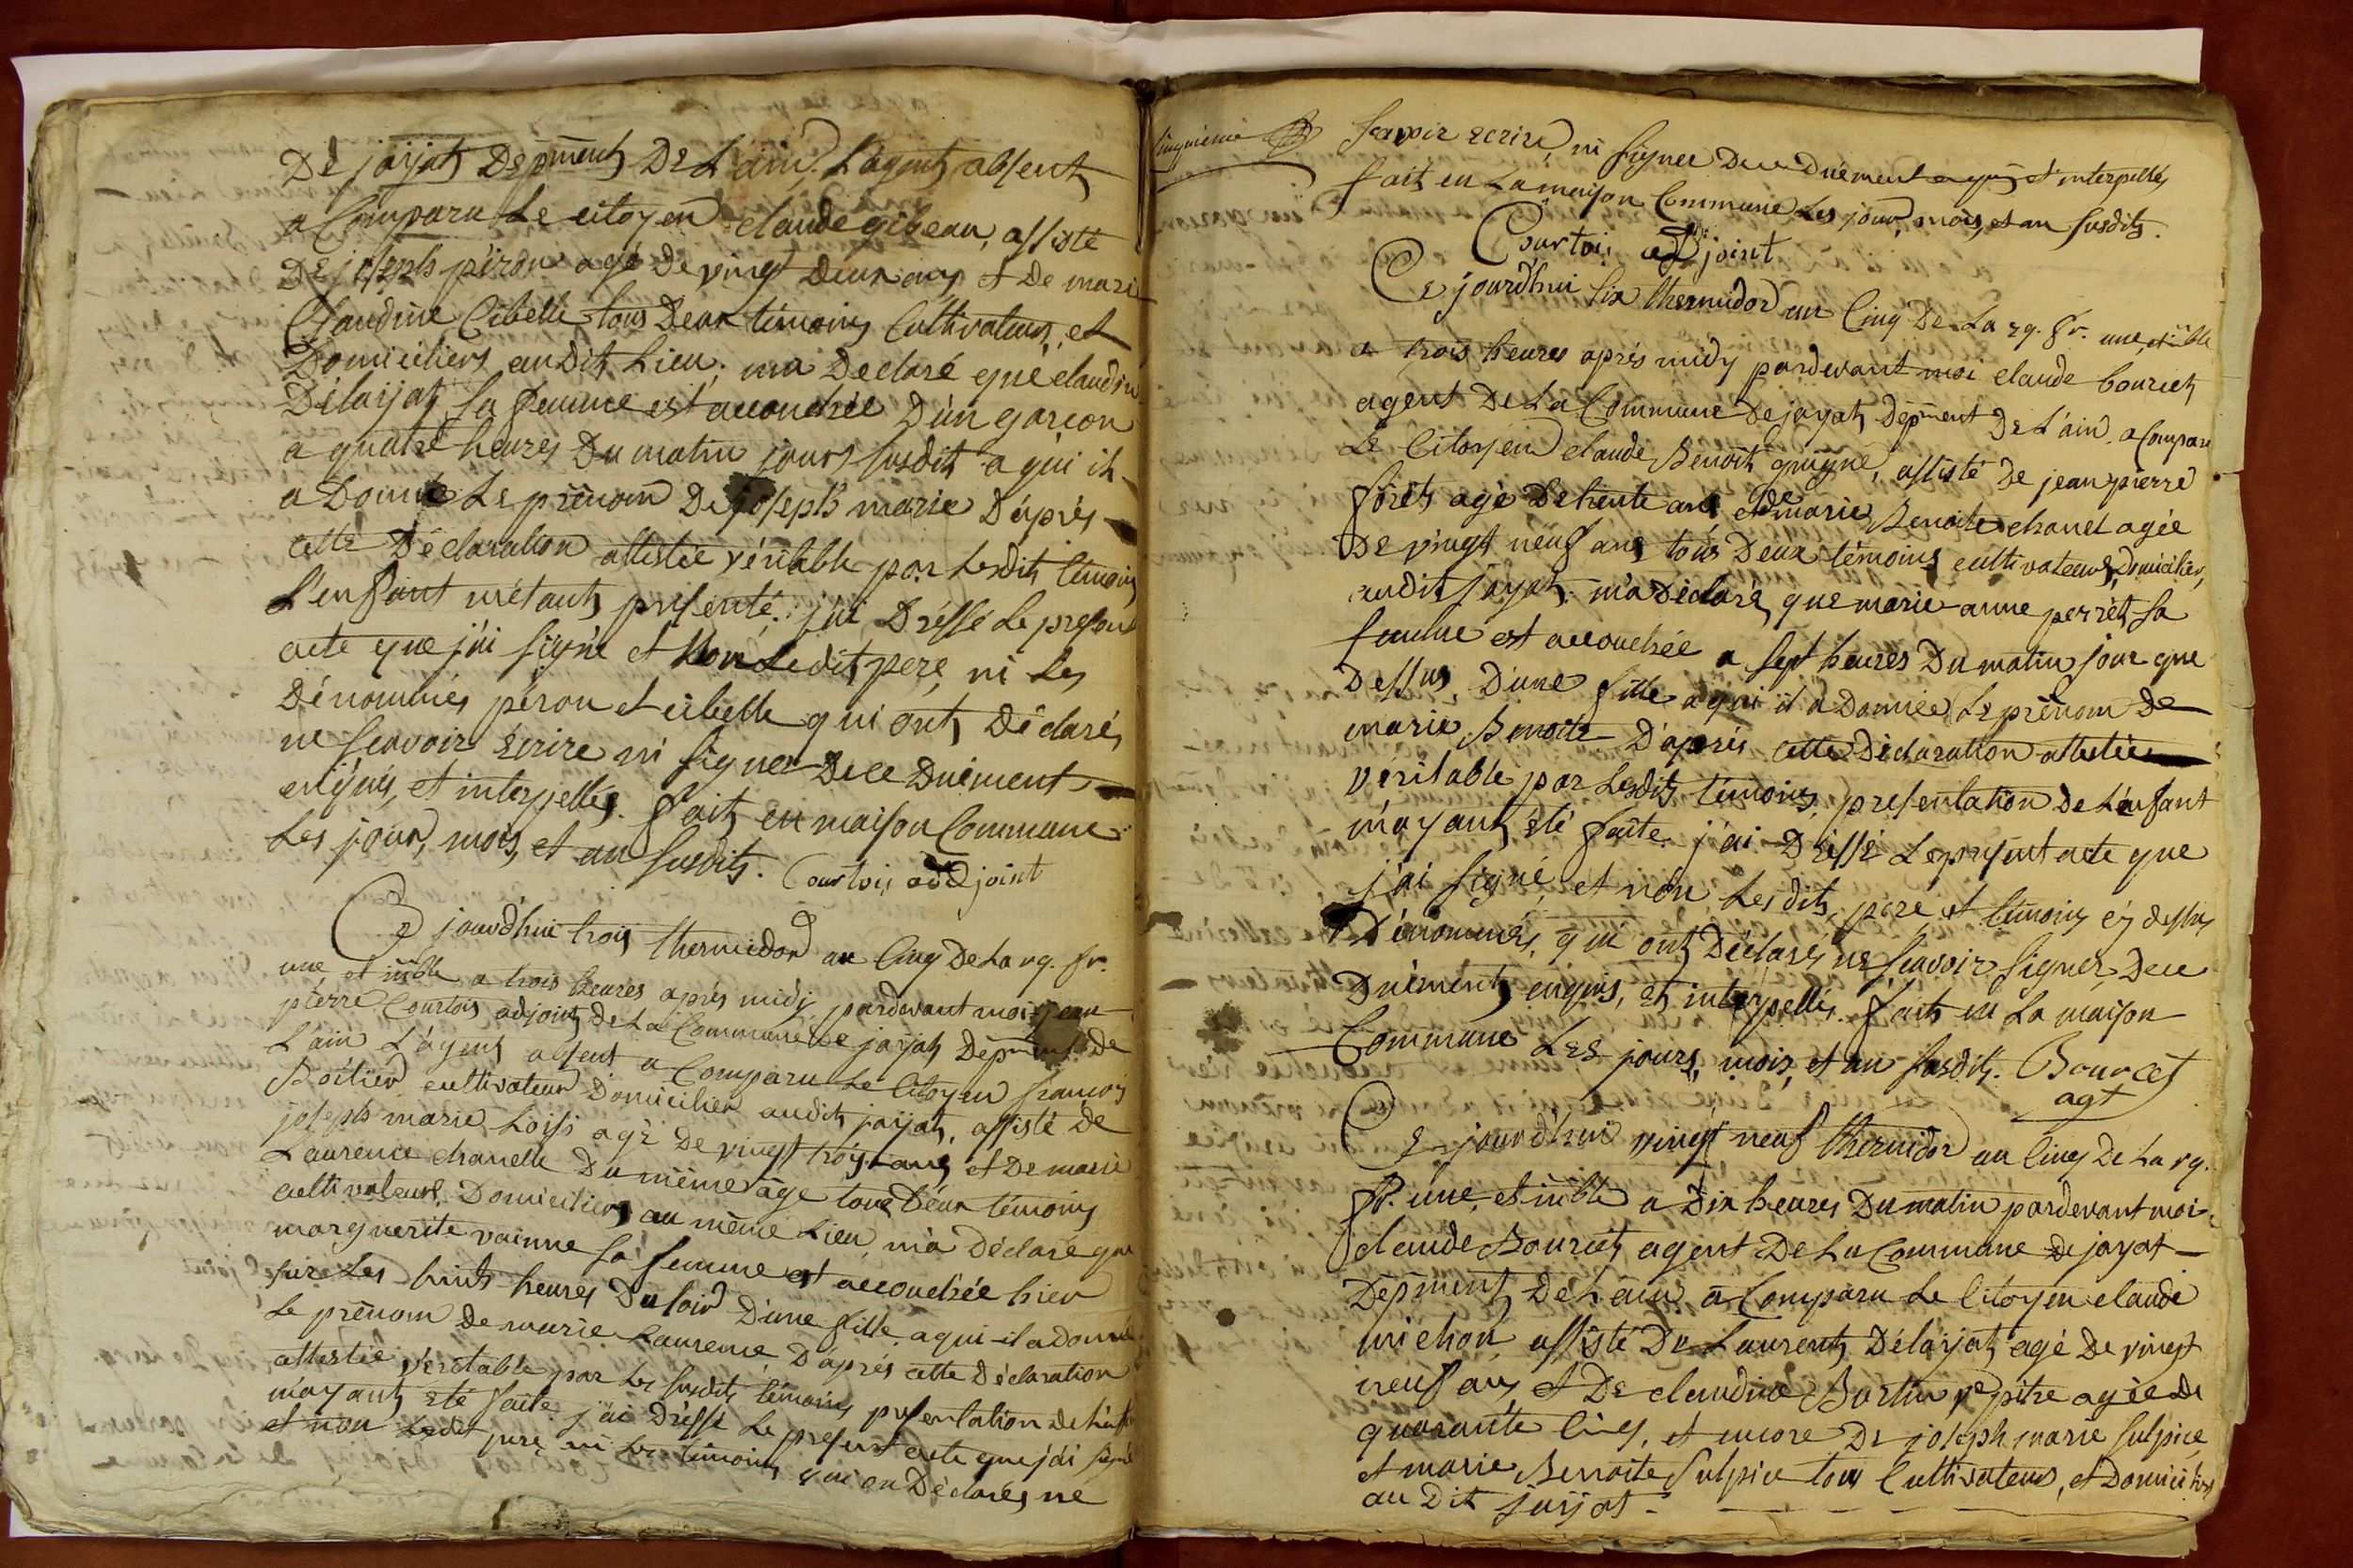 De jayat Depment De L'ain. L'agent absent
a Comparu Le citoyen claude gibeau, assisté
De joseph péron agé De vingt Deux ans et De marie
Claudine Cibelle tous Deux témoins Cultivateurs, et
Domiciliers audit Lieu; ma Declaré que claudine
Délaijat sa femme est accouchée D'un garcon
a quatre heures Du matin jours susdit a qui il
a Donné Le prénom De joseph marie D'aprés
cette Déclaration attestée véritable par Lesdits témoins
L'enfant métant presenté. j'ai Dréssé Le present
acte que j'ai signé et Non Ledit pere, ni Les
Dénommés péron et cibelle qui ont Déclaré,
ne scavoir écrire ni signer De ce Dûement
enquis, et interpellés. fait en maison Commune
Les jour, mois, et an susdits. Courtois addjoint
Ce jourd'hui trois thermidor an Cinq De La rq. fr.
une, et indble a trois heures aprés midi, pardevant moi jean
pierre Courtois adjoint De La Commune De jayat Depment de
L'ain L'agent absent a Comparu Le Citoyen francois
Boitier cultivateur Domicilier audit jayat, assisté de
joseph marie Loisi agé De vingt trois ans, et De marie
Laurence chanelle Du même âge tous Deux témoins
cultivateurs Domiciliers au même Lieu, m'a Déclaré que
marguerite vainne sa femme est accouchée hier
sur Les huit heures Du soir D'une fille a qui il a Donné
Le prénom de marie Laurence D'aprés cette Déclaration
attestée véritable par Les susdits témoins presentation de L'enft
m'ayant été faite j'ai Dréssé Le present acte que j'ai signé
et non Ledit pere ni Les témoins qui on Déclarés ne
Scavoir ecrire, ni signer De ce Dûement enquis et interpellés
fait en La maison Commune Les jour, mois, et an susdits.
Courtois addjoint
Ce jourd'hui six thermidor an Cinq De La rq. fr. une, et indble
a trois heures aprés midy pardevant moi claude bourcet
agent De La Commune De jayat Depment De L'ain. a Comparu
Le Citoyen claude Benoit guigne, assisté De jean pierre
forêt agé De trente ans et de marie Benoite chanel agée
De vingt neuf ans tous Deux témoins cultivateurs, Domiciliers,
audit jayat, m'a Déclaré que marie anne perrèt sa
femme est accouchée a sept heures Du matin jour que
Dessus, D'une fille a qui il a Donnée Le prénom De
marie Benoite D'aprés cette Déclaration attestée
véritable par Lesdits témoins, presentation De L'enfant
m'ayant été faite. j'ai Dréssé Le present acte que
j'ai signé, et non Lesdits, père, et témoins cy dessus
Dénommés, qui ont Déclaré ne scavoir signer, De ce
Dûement enquis, et interpellés. fait en La maison
Commune Les jours, mois, et an susdits. Bourcet
agt
Ce jourd'hui vingt neuf thermidor an Cinq De La rq.
fr. une, et indble a Dix heures Du matin pardevant moi
claude Bourcet agent De La Commune De jayat
Depment De L'ain. a Comparu Le Citoyen claude
michon, assisté De Laurent Délayat agé De vingt
neuf ans et De claudine Bartin agée de
quarante Cinq, et encore De joseph marie sulpice
et marie Benoite sulpice tous Cultivateurs, et Domiciliers
au Dit jayat